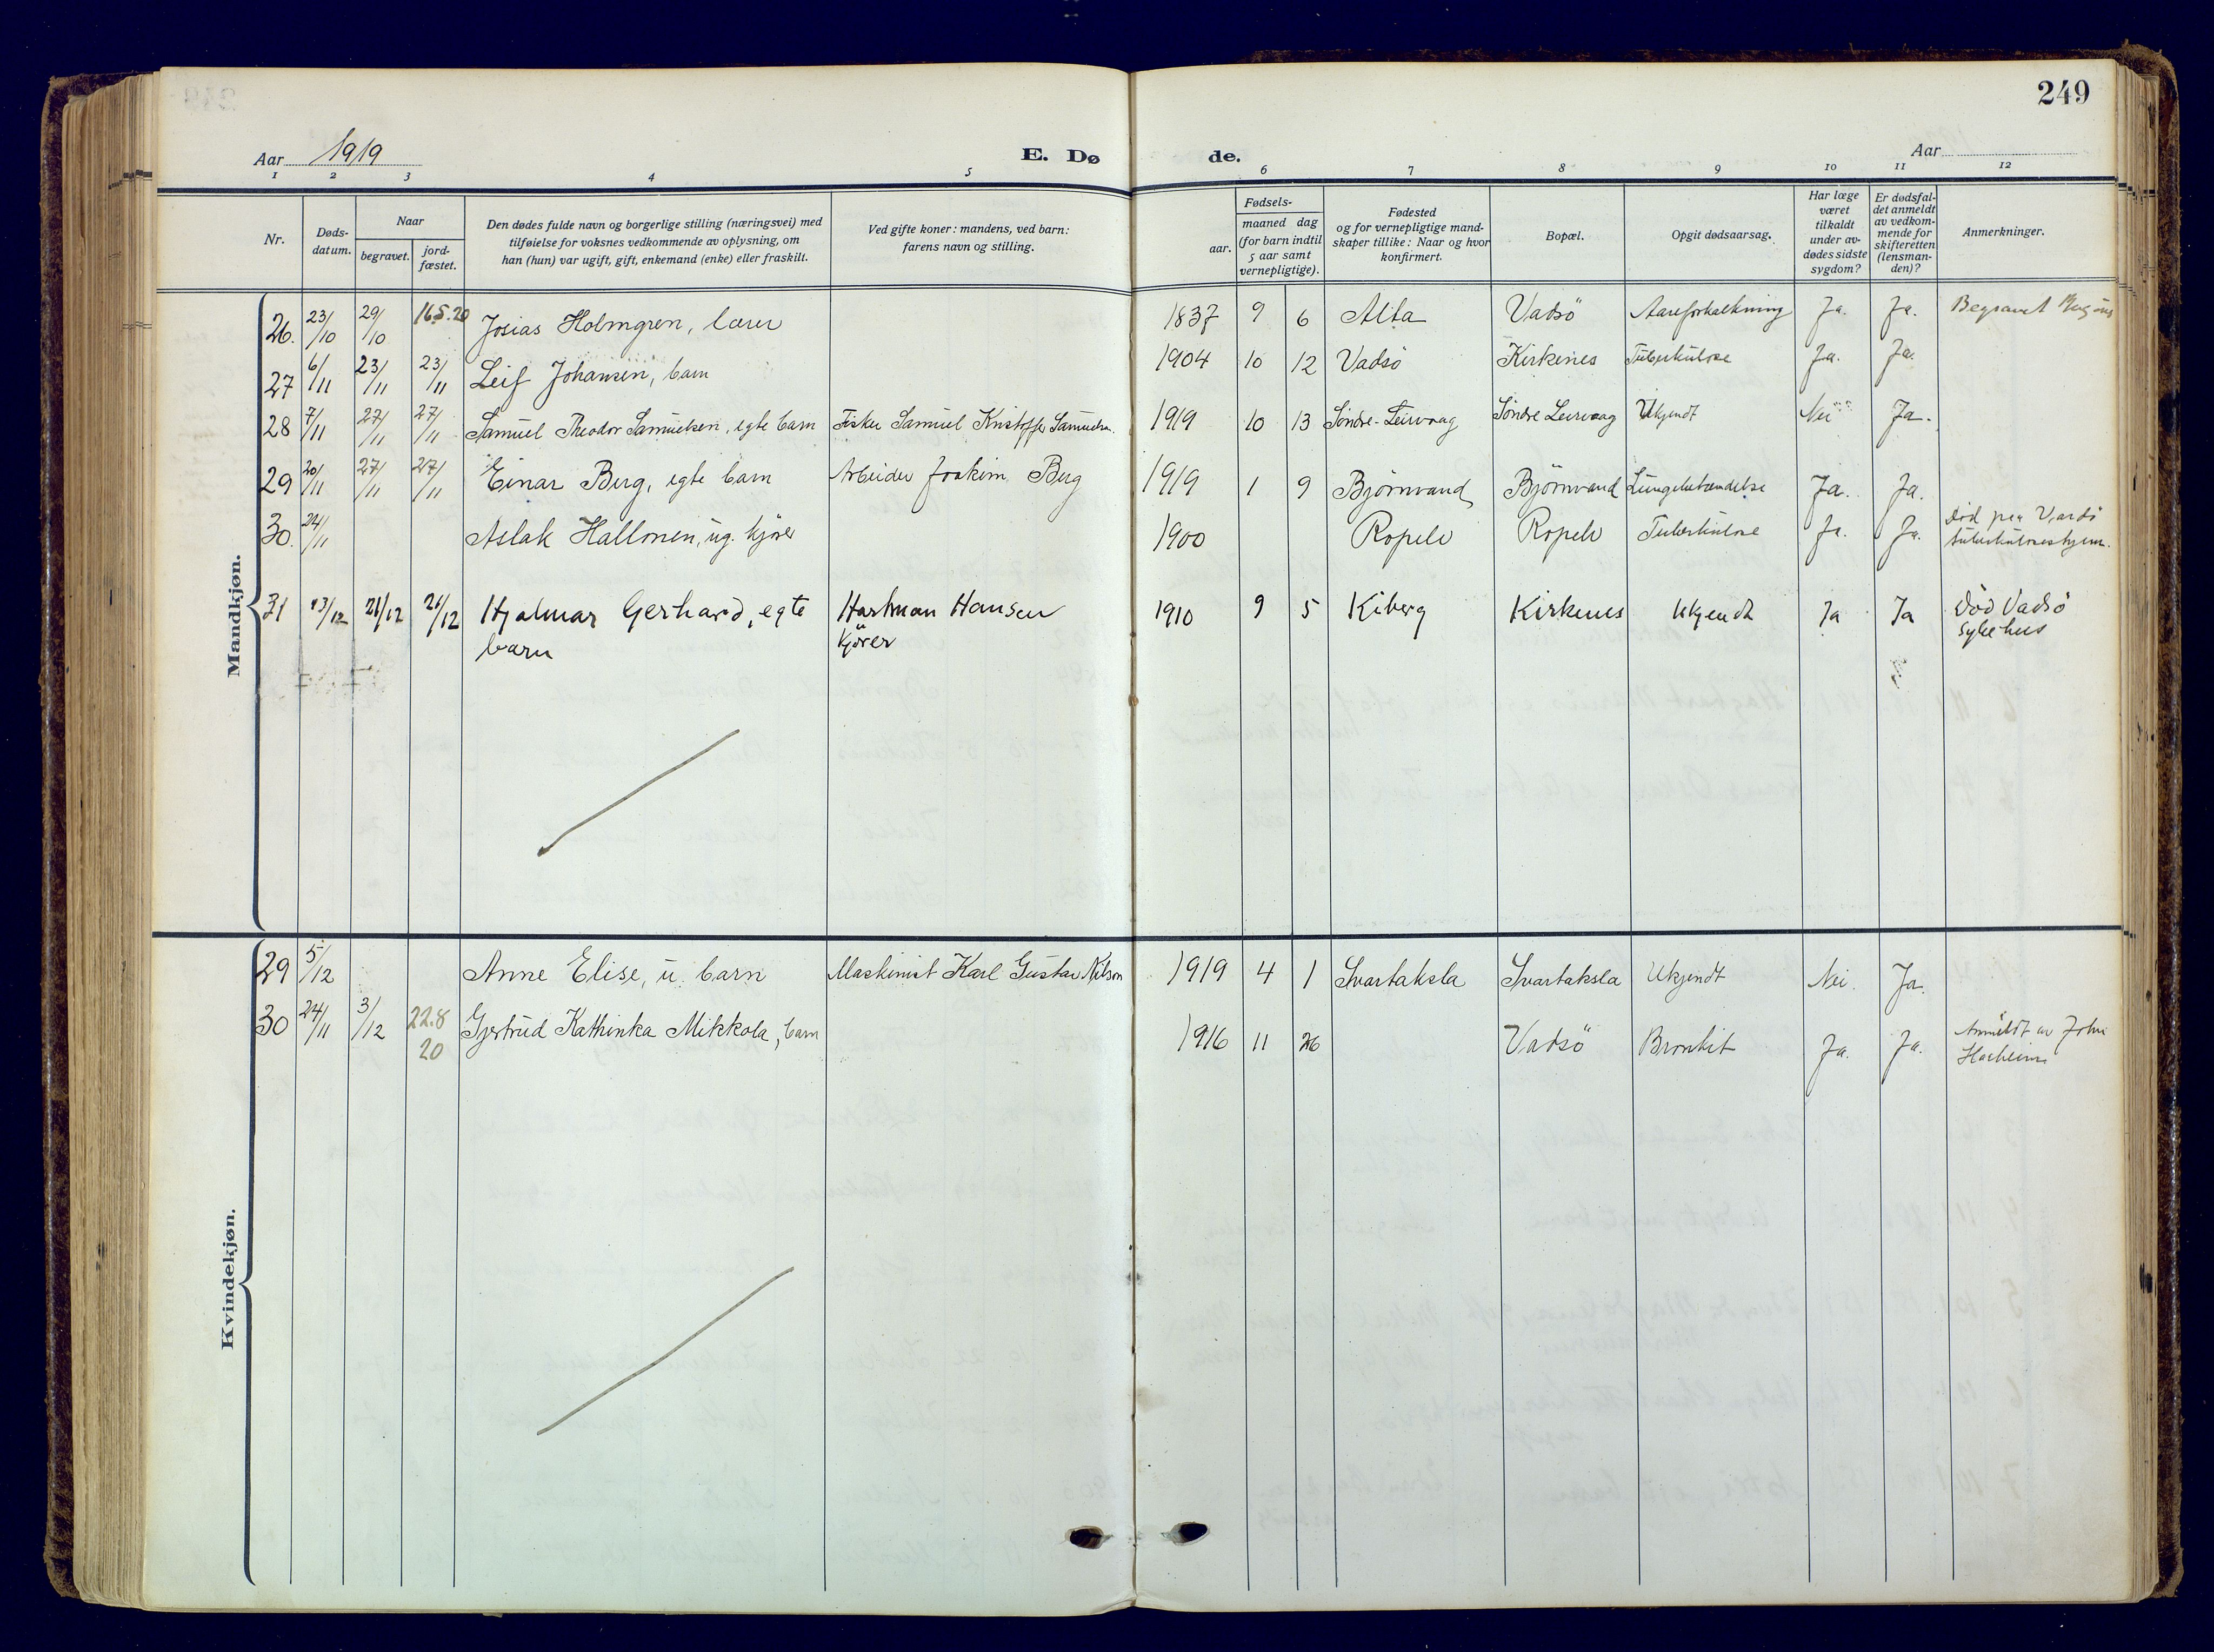 249
Aar 1919
E. Dø
de.
Aar
1 2 3 4 5 6 7 8 9 10 11 12
Nr.
Døds-
datum.
Naar
begravet.
jord-
fæstet.
Den dødes fulde navn og borgerlige stilling (næringsvei) med
tilføielse for voksnes vedkommende av oplysning, om
han (hun) var ugift, gift, enkemand (enke) eller fraskilt.
Ved gifte koner: mandens, ved barn:
farens navn og stilling.
Fødsels-
aar.
maaned dag
(for barn indtil
5 aar samt
vernepligtige).
Fødested
og for vernepligtige mand-
skaper tillike: Naar og hvor
konfirmert.
Bopæl.
Opgit dødsaarsag.
Har læge
været
tilkaldt
under av-
dødes sidste
sygdom?
Er dødsfal-
det anmeldt
av vedkom-
mende for
skifteretten
(lensman-
den)?
Anmerkninger.
Mandkjøn.
26. 23/10 29/10 16.5.20 Josias Holmgren, lærer 1837 9 6 Alta Vadsö Aareforkalkning Ja. Ja. Begravet
27 6/11 23/11 23/11 Leif Johansen, barn 1904 10 12 Vadsö Kirkenes Tuberkulose Ja. Ja.
28 7/11 27/11 27/11 Samuel Theodor Samuelsen, egte barn Fisker Samuel Kristoffer Samuelsen. 1919 10 13 Söndre-Leirvaag Söndre Leirvaag Ukjendt Nei Ja.
29 20/11 27/11 27/11 Einar Berg, egte barn Arbeider Joakim Berg 1919 1 9 Björnvand Björnvand Lungebetændelse Ja. Ja.
30. 24/11 Aslak Hallonen, ug. kjörer 1900 Ropelv Ropelv Tuberkulose Ja. Ja. Död paa Vardö
tuberkulosehjem.
31 13/12 21/12 21/12 Hjalmar Gerhard, egte Hartman Hansen 1910 9 5 Kiberg Kirkenes Ukjendt Ja Ja Död Vadsö
barn kjörer sykehus
Kvindekjøn.
29 5/12 Anne Elise, u. barn Maskinist Karl Gustav Nilson 1919 4 1 Svartaksla Svartaksla Ukjendt Nei. Ja.
30 24/11 3/12 22.8 Gjertrud Kathinka Mikkola, barn 1916 11 26 Vadsö Bronkit Ja. Ja. Anmeldt av John
20